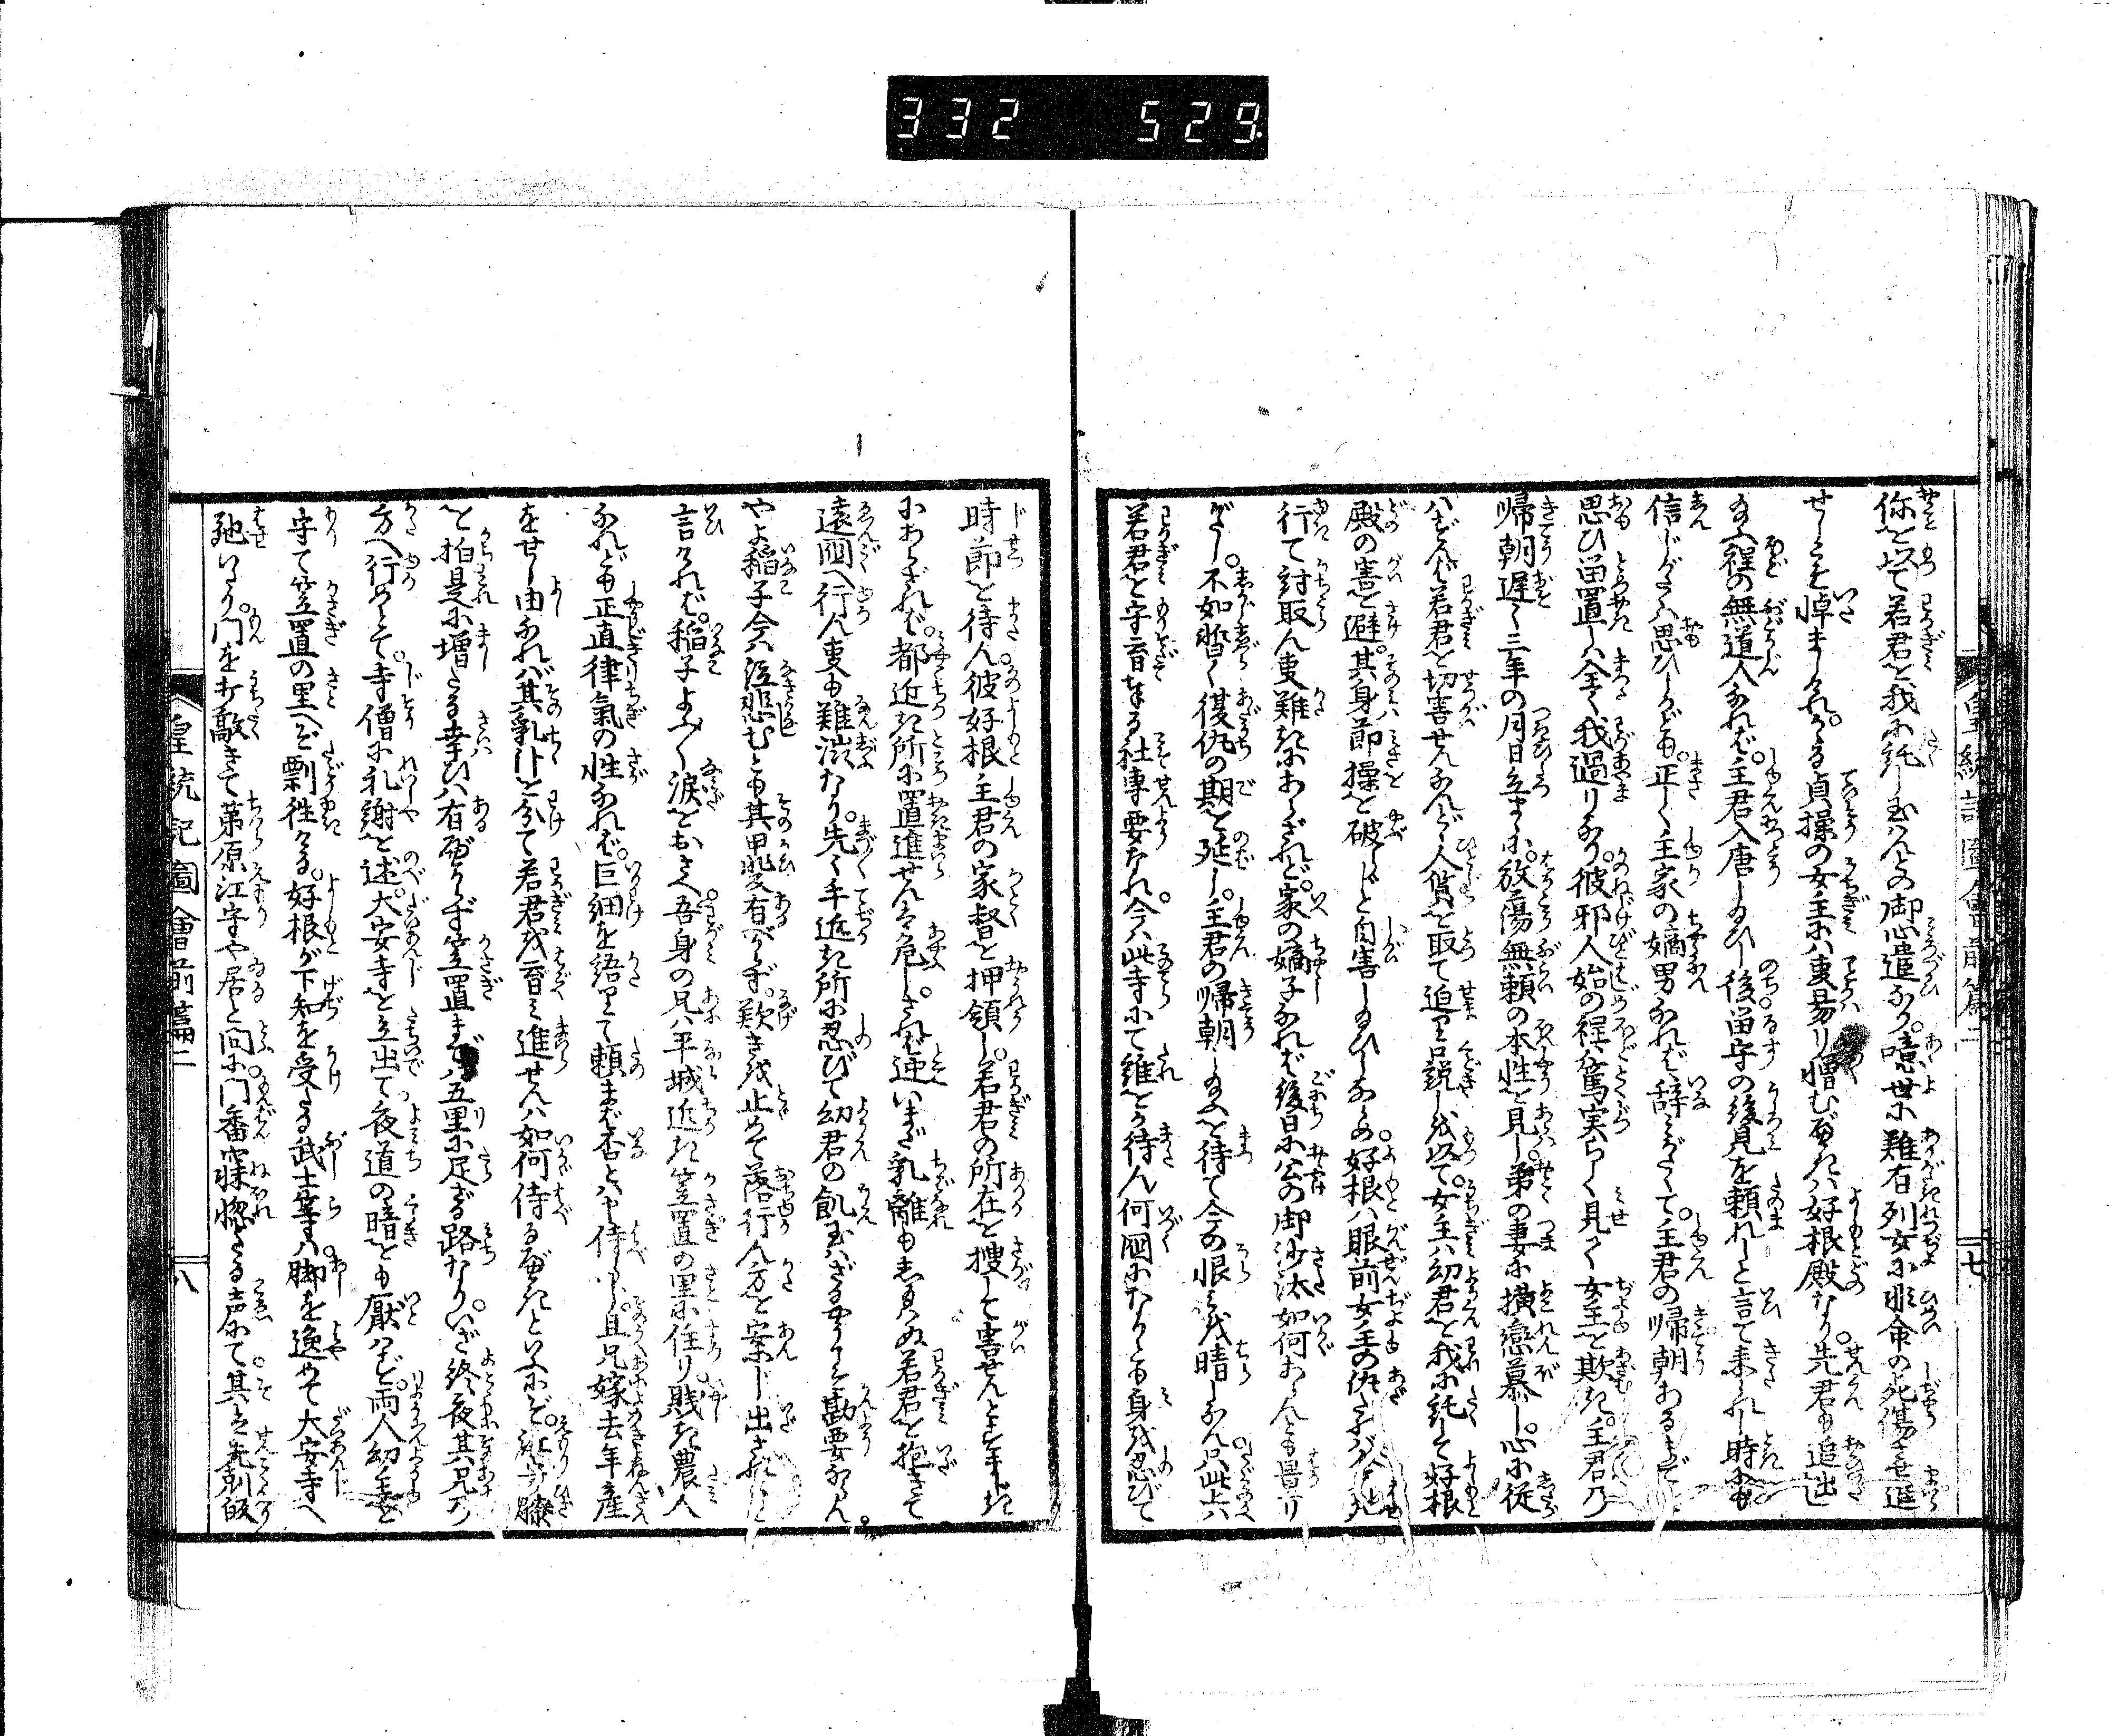 332 529.
皇統記圖會前篇二 七
你を以て若君を我に託し玉はんとの御心遣なり。嗚世に難有列女に非命の死傷させ進
せしことを悼ましけれ。かゝる貞操の女主に事易り憎むべきハ好根殿なり。先君も追出し
玉ふ程の無道人なれど。主君入唐し玉ひし後留守の後見を頼れしと言て来られし時にも
信じがたくハ思ひしかども。正しく主家の嫡男なれば辞みがたくて。主君の帰朝あるまで
思ひ留置しハ全く我過りなり。彼邪人始の程ハ篤実らしく見せて女主を欺き。主君の
帰朝遅く三年の月日立まゝに。放蕩無頼の本性を見し。弟の妻に横恋慕し。心に従
ハずんば若君を切害せんなんど人質を取て迫り口説しを以て。女主ハ幼君を我に託して好根
殿の害を避。其身節操を破らじと自害し玉ひしなるめ好根ハ眼前女主の仇なれバ
行て討取ん事難きにあらざれど。家の嫡子なれば後日に公の御沙汰如何あらんとも量り
がたし。不如暫く復仇の期を延し。主君の帰朝し玉ふを待て今の恨みを晴しなん。只此上ハ
若君を守育奉る社専要なれ。今ハ此寺にて誰をか待ん何国になりとも身を忍びて
時節を待ん。彼好根主君の家督を押領し。若君の所在を捜して害せんとすまじき
にあらざれば。都近き所に置進せんは危し。されば迚いまだ乳離もし玉ハぬ若君を抱きて
遠国へ行ん事も難渋なり。先々手近き所に忍びて幼君の飢玉ハざるやうこそ勘要ならん。
やよ稲子今ハ泣悲むとも其甲斐有べからず。歎きを止めて落行ん方を案じ出されよと
言けれバ。稲子よふ〳〵涙をおさへ吾身の兄ハ平城近き笠置の里に住リ賤き農人
なれども正直律氣の性なれば。巨細を語りて頼まば否とハや侍らじ。且兄嫁去年産
をせし由なれバ其乳汁を分て若君を育ミ進せんハ如何侍るべきといふにぞ。江守膝
を拍是に増たる幸ひハ有べからず笠置までハ五里に足ざる路なり。いざ終夜其兄の
方へ行めとて。寺僧に礼謝を述。大安寺を立出て夜道の暗をも厭ハず。両人幼主を
守て笠置の里へぞ剽往ける。好根が下知を受たる武士等ハ脚を逸めて大安寺へ
馳いたり。門を打敲きて茅原江守や居と問に。門番寐惚たる声にて。其は先刻皈
皇統記圖會前篇二 八